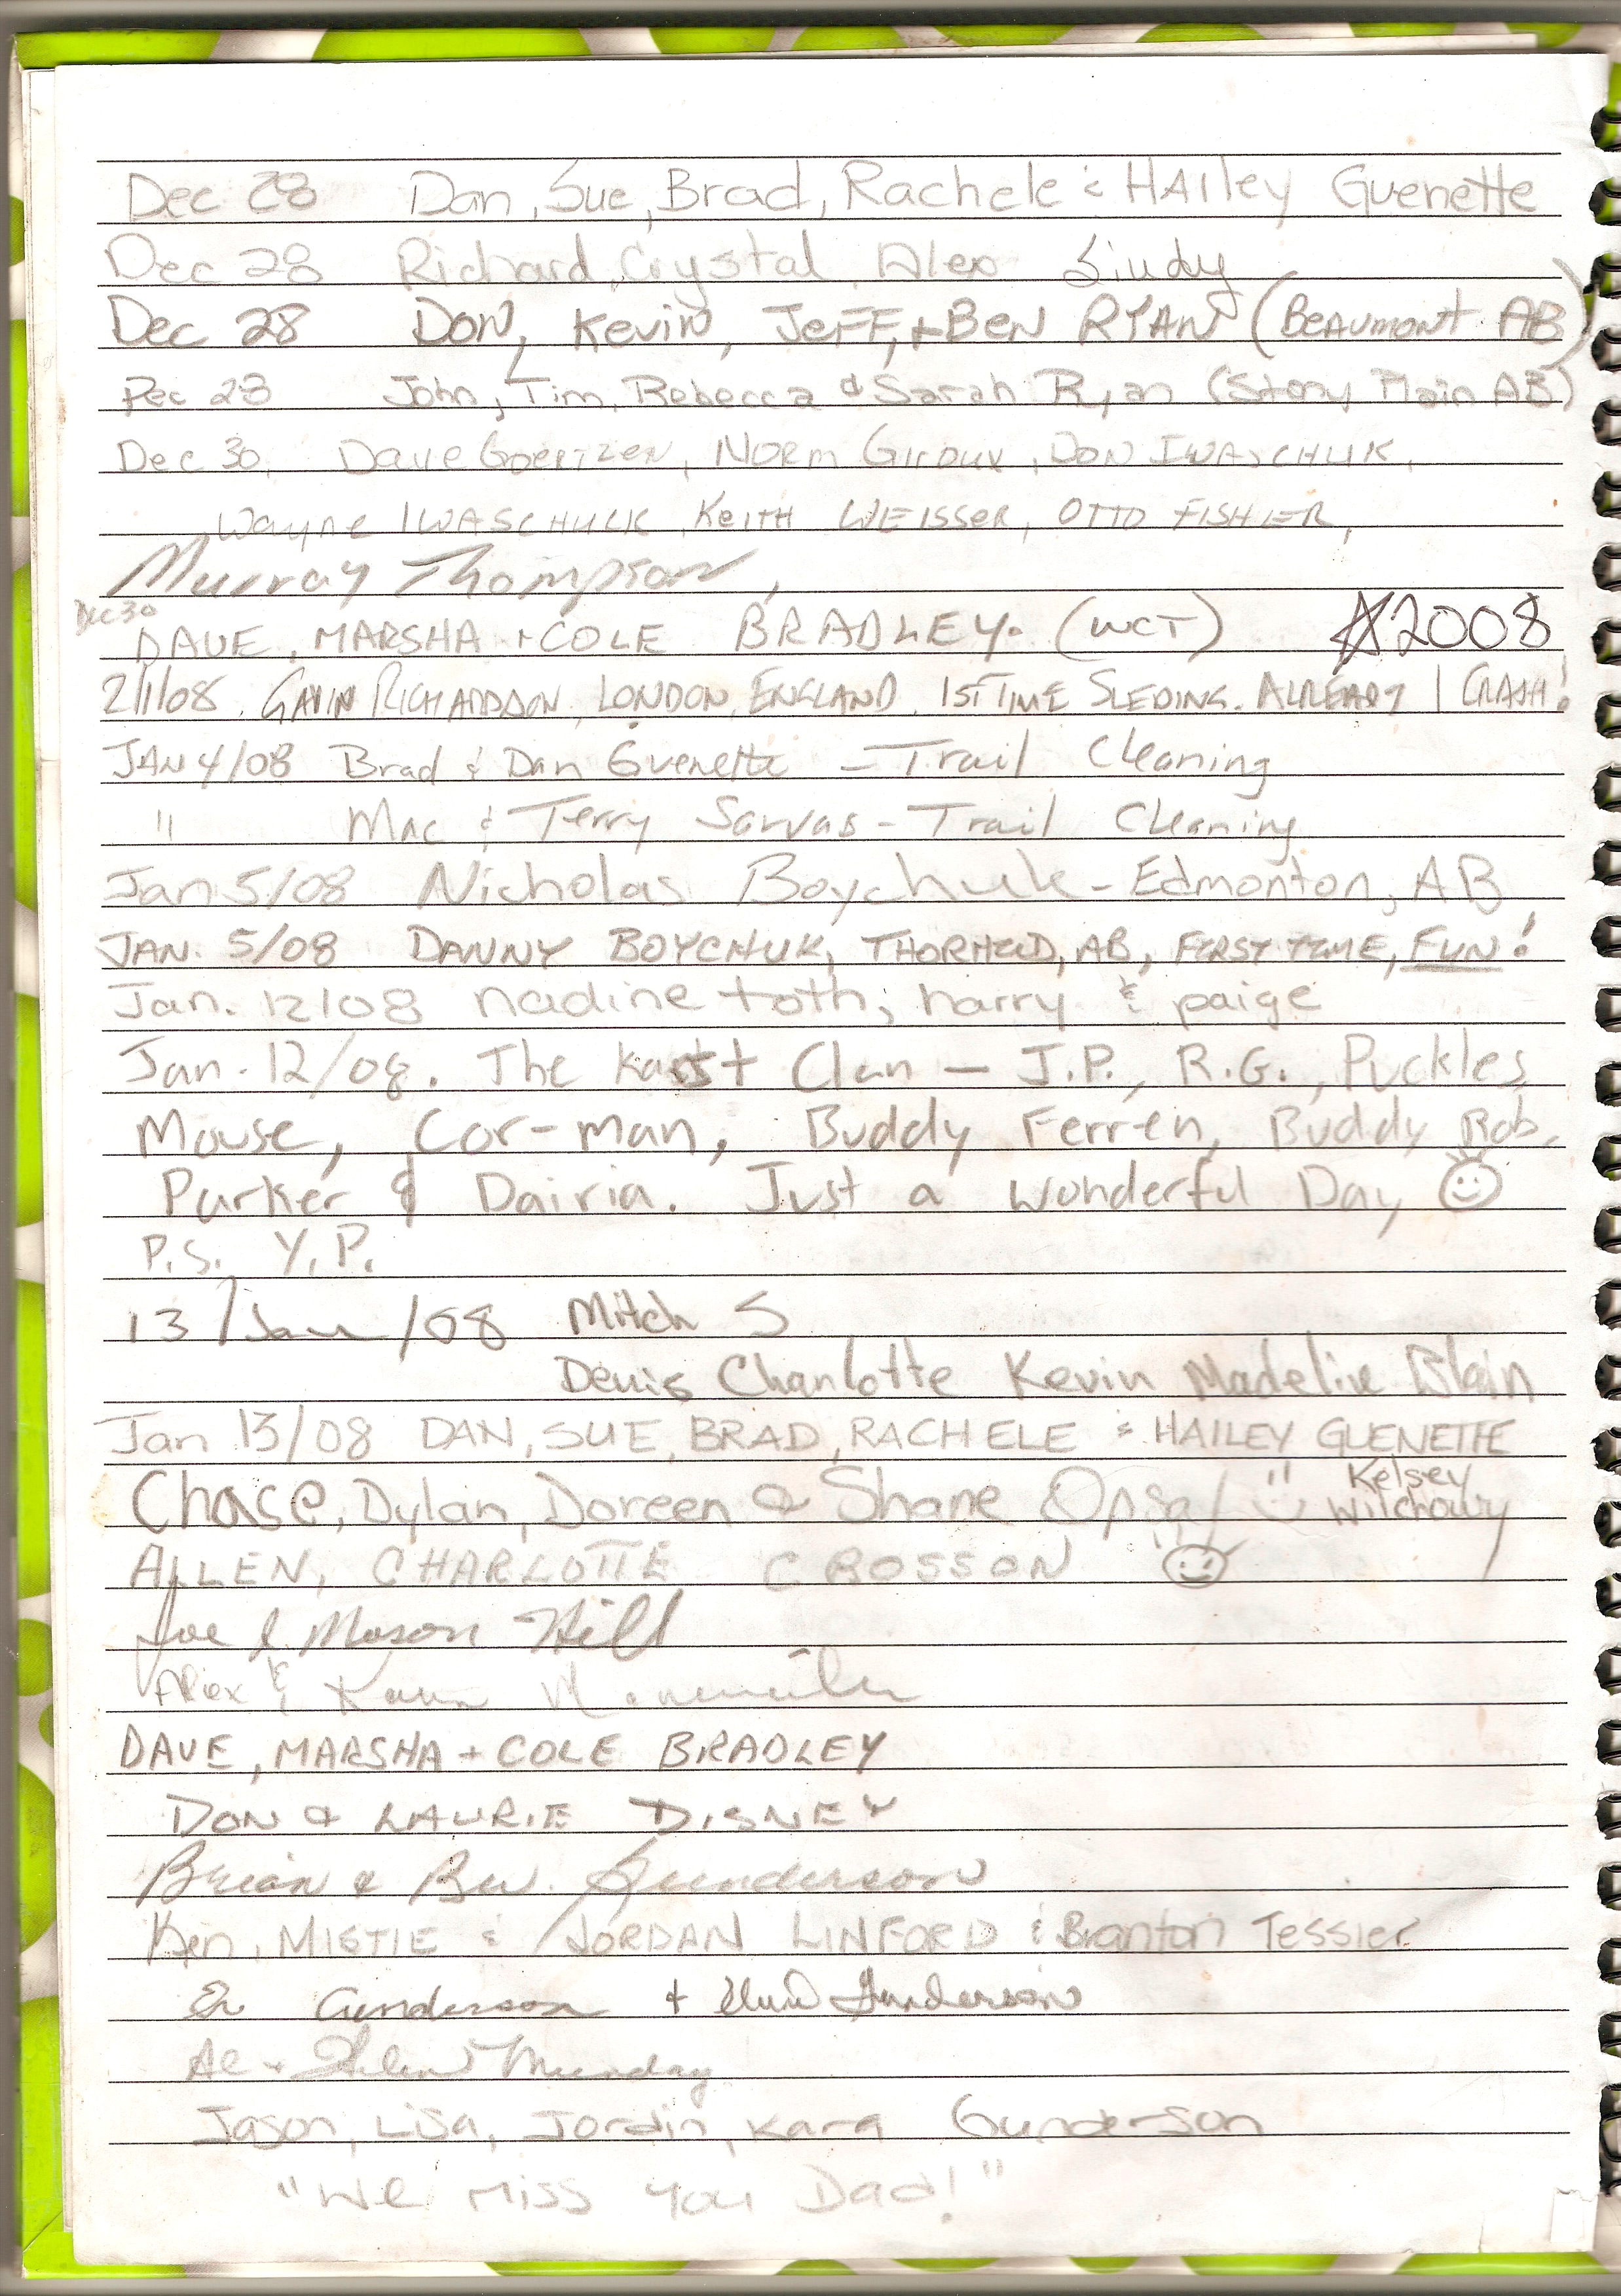 Dec 28 Dan, Sue, Brad, Rachele & HAiley Guenette
Dec 28 Richard, Crystal Alex Sindy
Dec 28 DON, Kevin, JeFF, + BeN RYAN (BeAumont AB)
Dec 28 John, Tim, Rebecca & Sarah Ryan (Stony Plain AB)
Dec 30, Dave Goertzen, NORM Giroux, DON IWASCHUK,
Wayne IWASCHUCK, KeitH WEISSER, OTTO FISHER,
Murray Thompson,
Dec 30
DAVE, MARSHA + COLE BRADLEY. (WCT) ☆2008
2/1/08. GAVIN RICHARDSON, LONDON, ENGLAND. 1ST TIME SLEDING. ALREADY 1 CRASH!
JAN 4/08 Brad & Dan Guenette - Trail Cleaning
" Mac & Terry Sarvas - Trail Cleaning
Jan 5/08 Nicholas Boychuk - Edmonton, AB
JAN. 5/08 DANNY BOYCHUK, THORHILD, AB, FIRST TIME, FUN!
Jan. 12/08 nadine toth, harry & paige
Jan. 12/08. The Karst Clan - J.P., R.G., Puckles,
Mouse, Cor-man, Buddy Ferren, Buddy Rob,
Parker & Dairia. Just a wonderful Day ☺
P.S. Y.P.
13/Jan/08 Mitch S
Denis Charlotte Kevin Madeline Blain
Jan 13/08 DAN, SUE, BRAD, RACHELE & HAILEY GUENETTE
Chase, Dylan, Doreen & Shane Opsal Kelsey
ALLEN, CHARLOTTE CROSSON
Joe & Mason Hill
Alex &
DAVE, MARSHA + COLE BRADLEY
DON & LAURIE DISNEY
Brian & Bev. Gunderson
Ken, MISTIE & JORDAN LINFORD & Branton Tessier
Gunderson + Gunderson
Al + Helen Munday
Jason, Lisa, Jordin, Kara Gunderson
"We miss you Dad!"